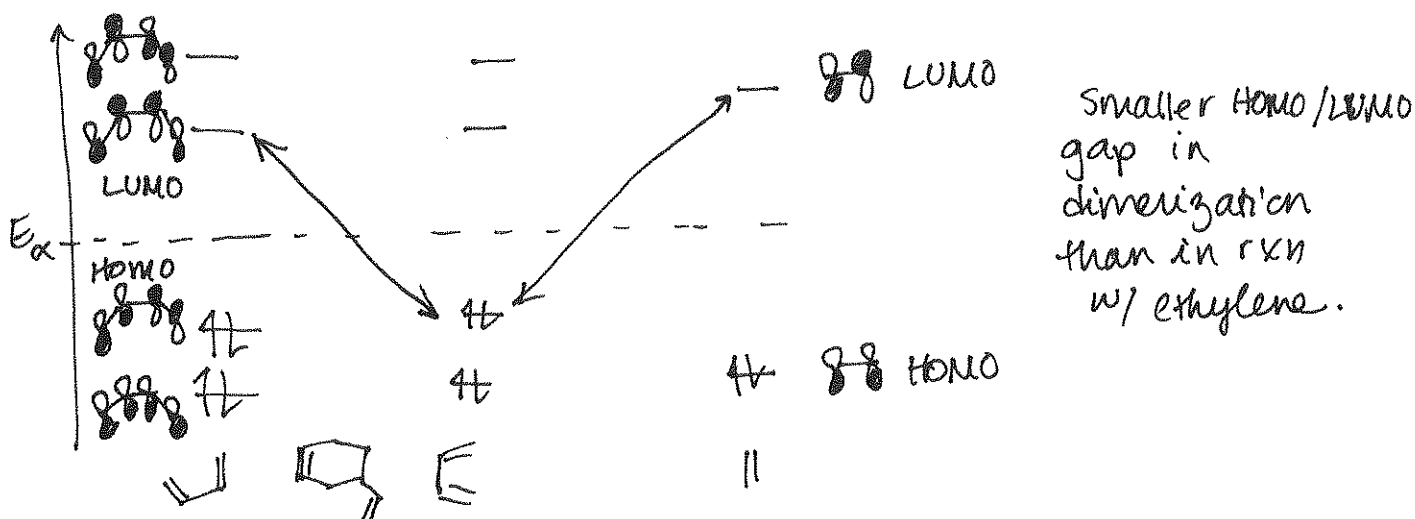 LUMO
LUMO
Eα
HOMO
HOMO
Smaller HOMO/LUMO
gap in
dimerization
than in rxn
w/ ethylene.